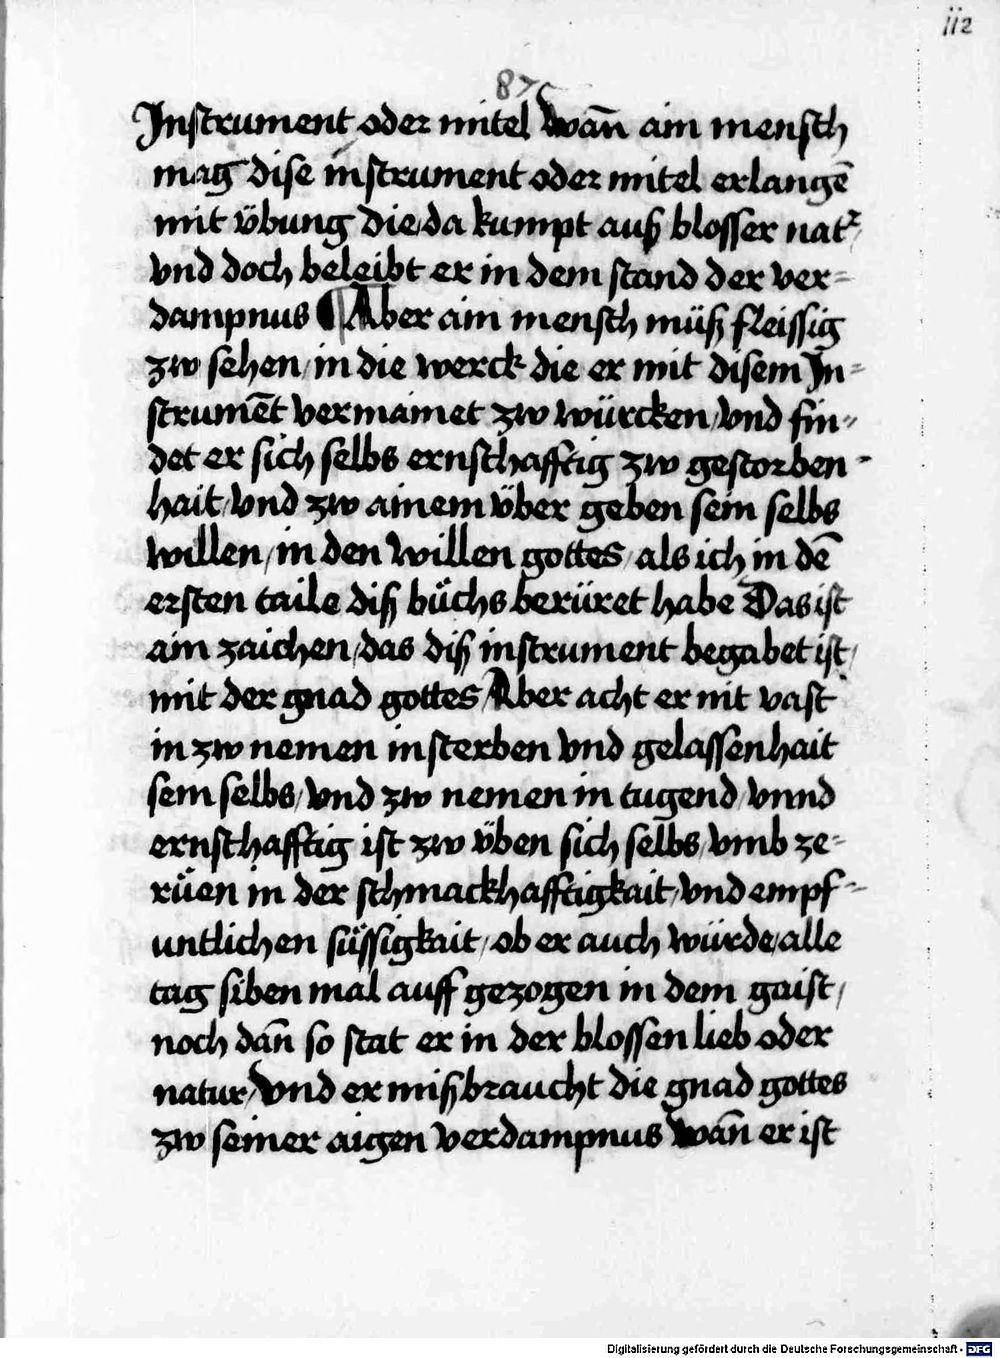 112
87
Instrument oder mitel Wañ ain mensch
mag dise instrument oder mitel erlangē
mit übung die da kumpt auß blosser nat᷑
vnd doch beleibt er in dem stand der ver=
dampnus ¶ Aber ain mensch müß fleissig
zw sehen / in die werck die er mit disem In=
strumēt vermainet zw würcken / vnd fin=
det er sich selbs ernsthafftig zw gestorben=
hait / vnd zw ainem über geben sein selbs
willen / in den willen gottes / als ich in dē
ersten taile diß büchs berüret habe Das ist
ain zaichen / das diß instrument begabet ist /
mit der gnad gottes / Aber acht er nit vast
in zw nemen in sterben vnd gelassenhait
sein selbs / vnd zw nemen in tugend / vnnd
ernsthafftig ist zw üben sich selbs / vmb ze=
rüen in der schmackhafftigkait / vnd empf=
untlichen süssigkait / ob er auch würde alle
tag siben mal auff gezogen in dem gaist /
noch dañ so stat er in der blossen lieb oder
natur / Vnd er mißbraucht die gnad gottes
zw seiner aigen verdampnus Wañ er ist
Digitalisierung gefördert durch die Deutsche Forschungsgemeinschaft - DFG